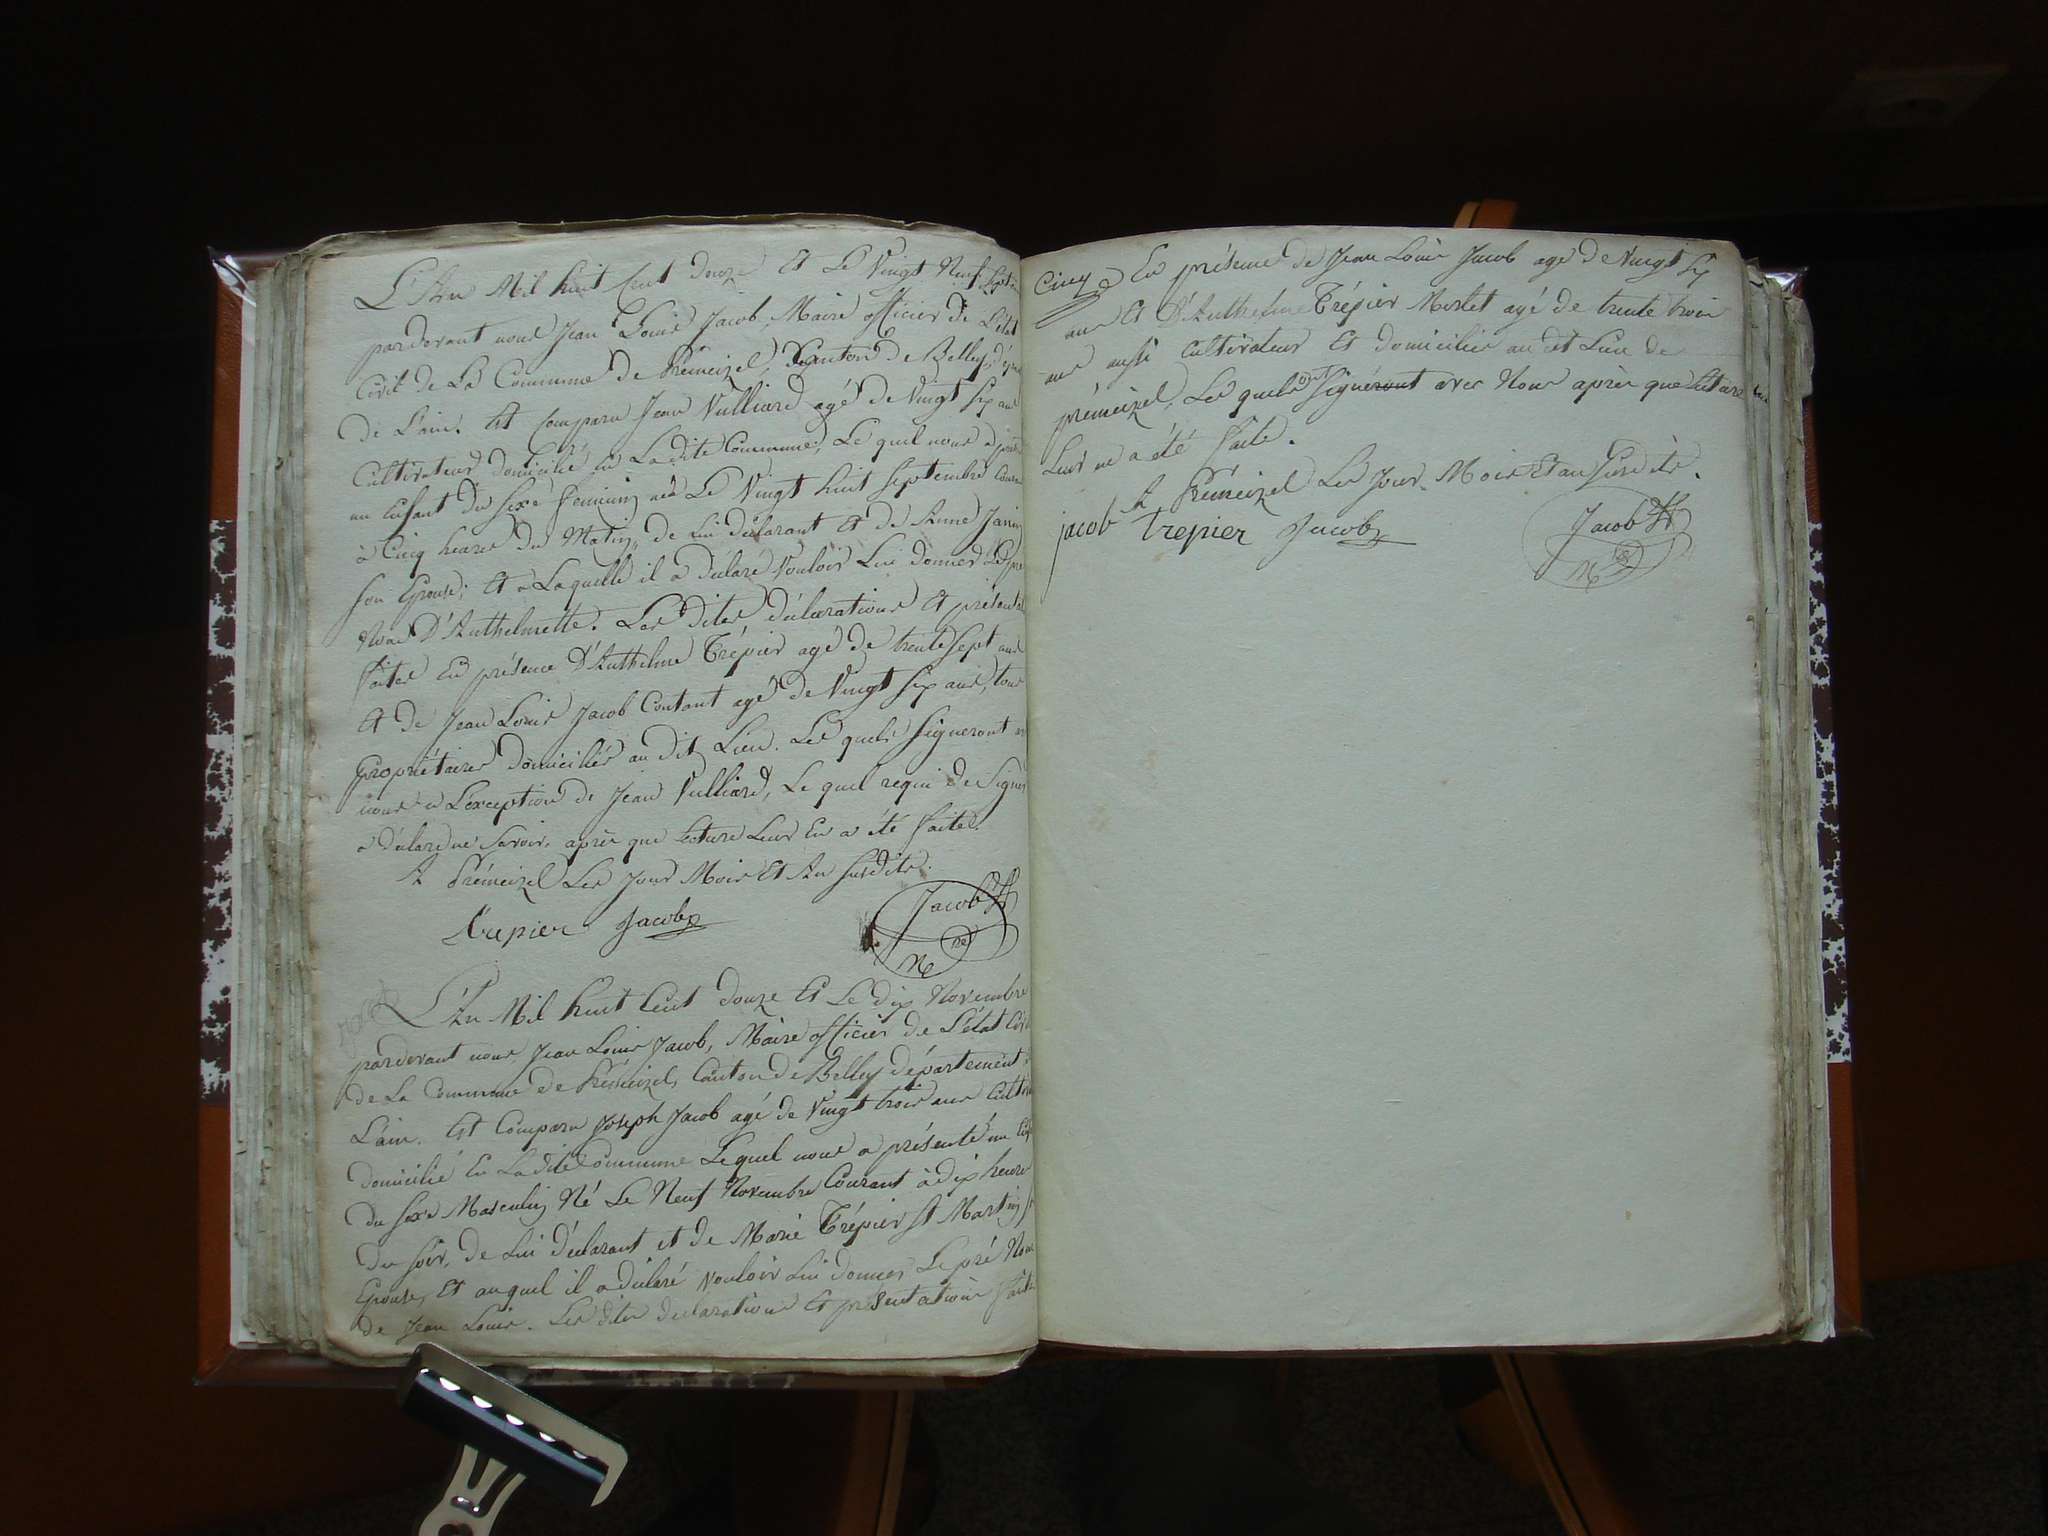 L'An Mil huit Cent douze Et Le Vingt Neuf Septem
pardevant nous Jean Louis Jacob, Maire officier de L'état
Civil de La Commune de Prémeizel, Canton de Belley, dépar
de L'ain. Est Comparu Jean Vulliard agé de Vingt Six ans
Cultivateur domicilié en Ladite Commune, Le quel nous a présen
un Enfant du Sexe feminin née Le Vingt huit Septembre Couran
à Cinq heures du Matin, de Lui déclarant Et de Anne Janin
Son Epouse; Et a Laquelle il a déclaré Vouloir Lui donner Le pré
Nom D'Anthelmette. Les dites déclarations Et présenta
faites En présence D'Anthelme Trépier agé de trente Sept ans
Et de Jean Louis Jacob Contant agé de Vingt Six ans, tous
Propriétaires domiciliés au dit Lieu. Les quels Signeront a
nous a L'exception de Jean Vulliard, Le quel requi de Signer
a déclaré ne Savoir, après que Lecture Leur En a été faite.
A Prémeizel Les Jour Mois Et An Susdits.
Trepier Jacob
Jacob
L'An Mil huit Cent douze Et Le dix Novembre
pardevant nous Jean Louis Jacob, Maire officier de L'état Civ
de La Commune de Prémeizel, Canton de Belley département
L'ain. Est Comparu Joseph Jacob agé de Vingt trois ans Cultiv
domicilié En Ladite Commune Lequel nous a présenté un Enf
du Sexe Masculin Né Le Neuf Novembre Courant à dix heures
du Soir, de Lui déclarant et de Marie Trépier St Martin S
Epouse, Et auquel il a déclaré Vouloir Lui donner Le pré Nom
de Jean Louis. Les dites declarations Et présentations faites
Cinq En présence de Jean Louis Jacob agé de Vingt Six
ans Et D'Anthelme Trépier Morlet agé de trente trois
ans aussi Cultivateurs Et domiciliés au dit Lieu de
prémeizel, Les quels ont Signéront avec Nous après que Lecture
Leur en a été faite.
A Prémeizel Les Jour, Mois Et an Susdits.
jacob trepier Jacob
Jacob